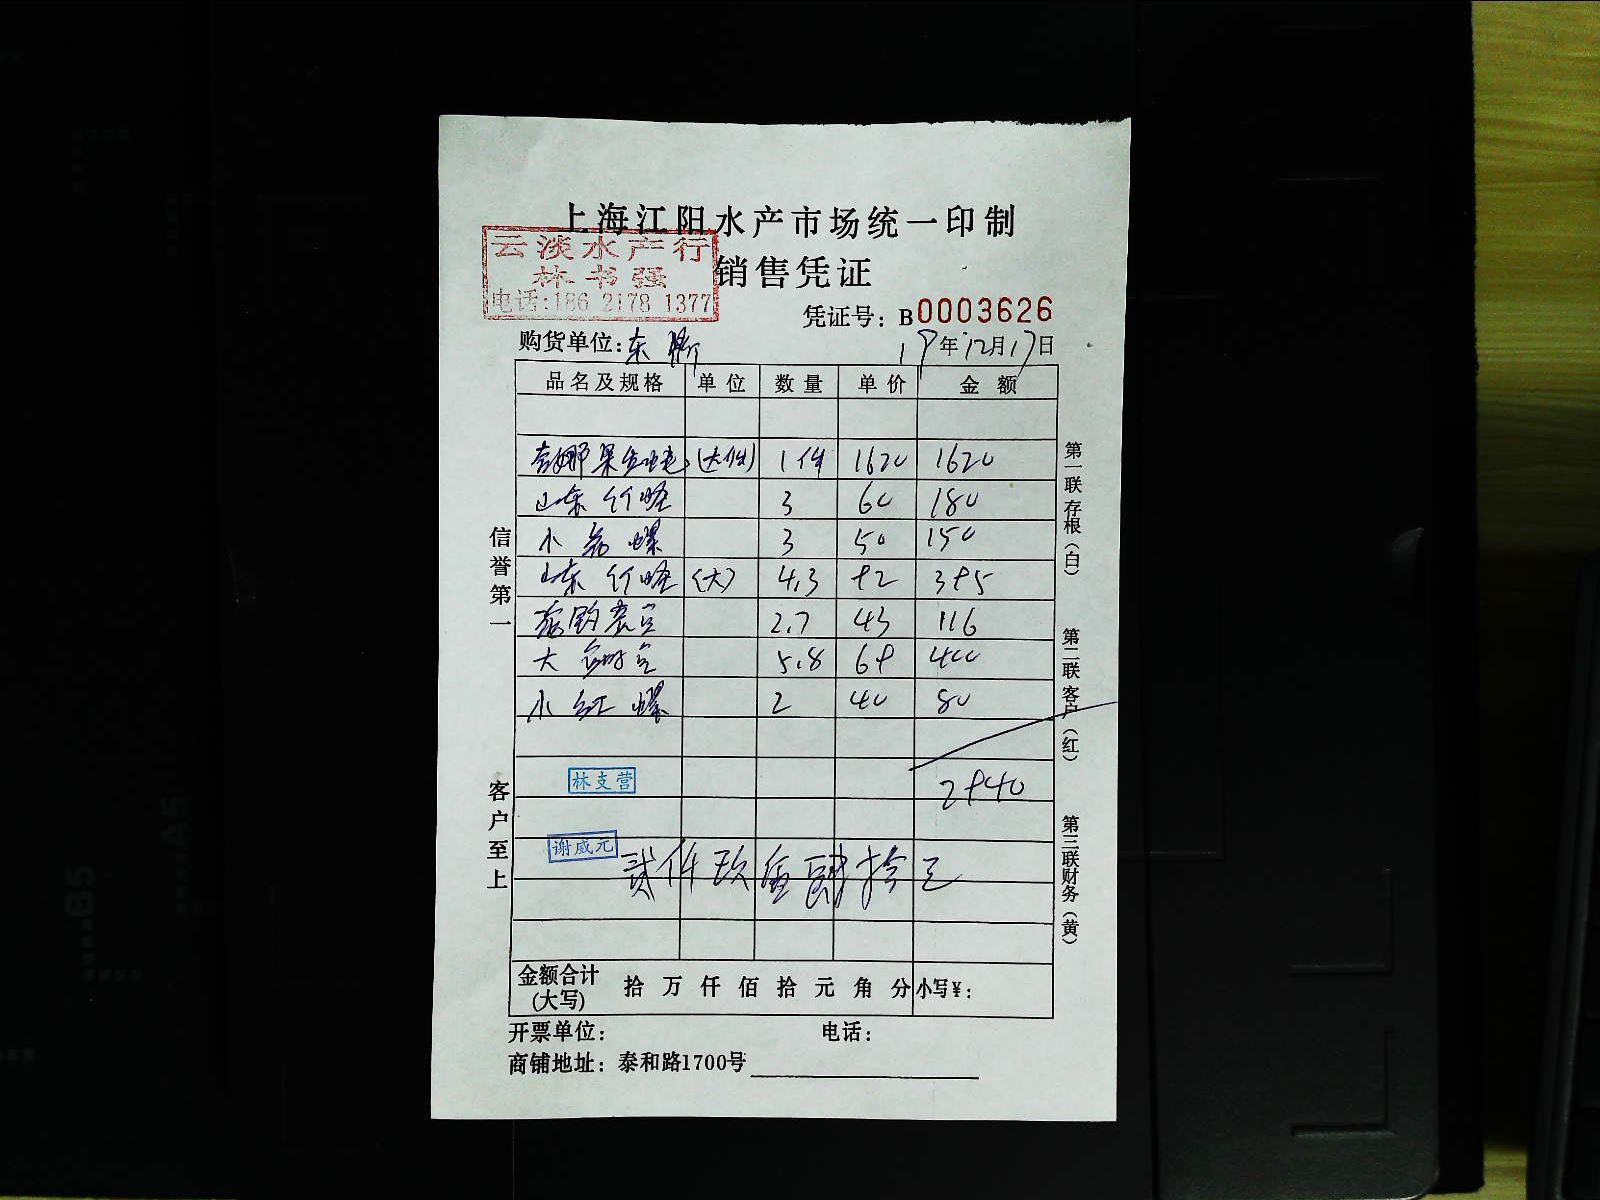 上海江阳水产市场统一印制
云淡水产行
林书强
电话:186 2178 1377
销售凭证
凭证号: B0003626
购货单位: 东
19年12月17日
品名及规格 单位 数量 单价 金额
(大件) 1件 1620 1620
山东竹蛏 3 60 180
小 螺 3 50 150
山东竹蛏 (大) 4.3 92 395
2.7 43 116
大 5.8 69 400
小红螺 2 40 80
林支营
2940
谢威元
贰仟玖佰肆拾元
金额合计
(大写)
拾 万 仟 佰 拾 元 角 分 小写¥:
开票单位: 电话:
商铺地址: 泰和路1700号
信誉第一
客户至上
第一联存根(白)
第二联客户(红)
第三联财务(黄)